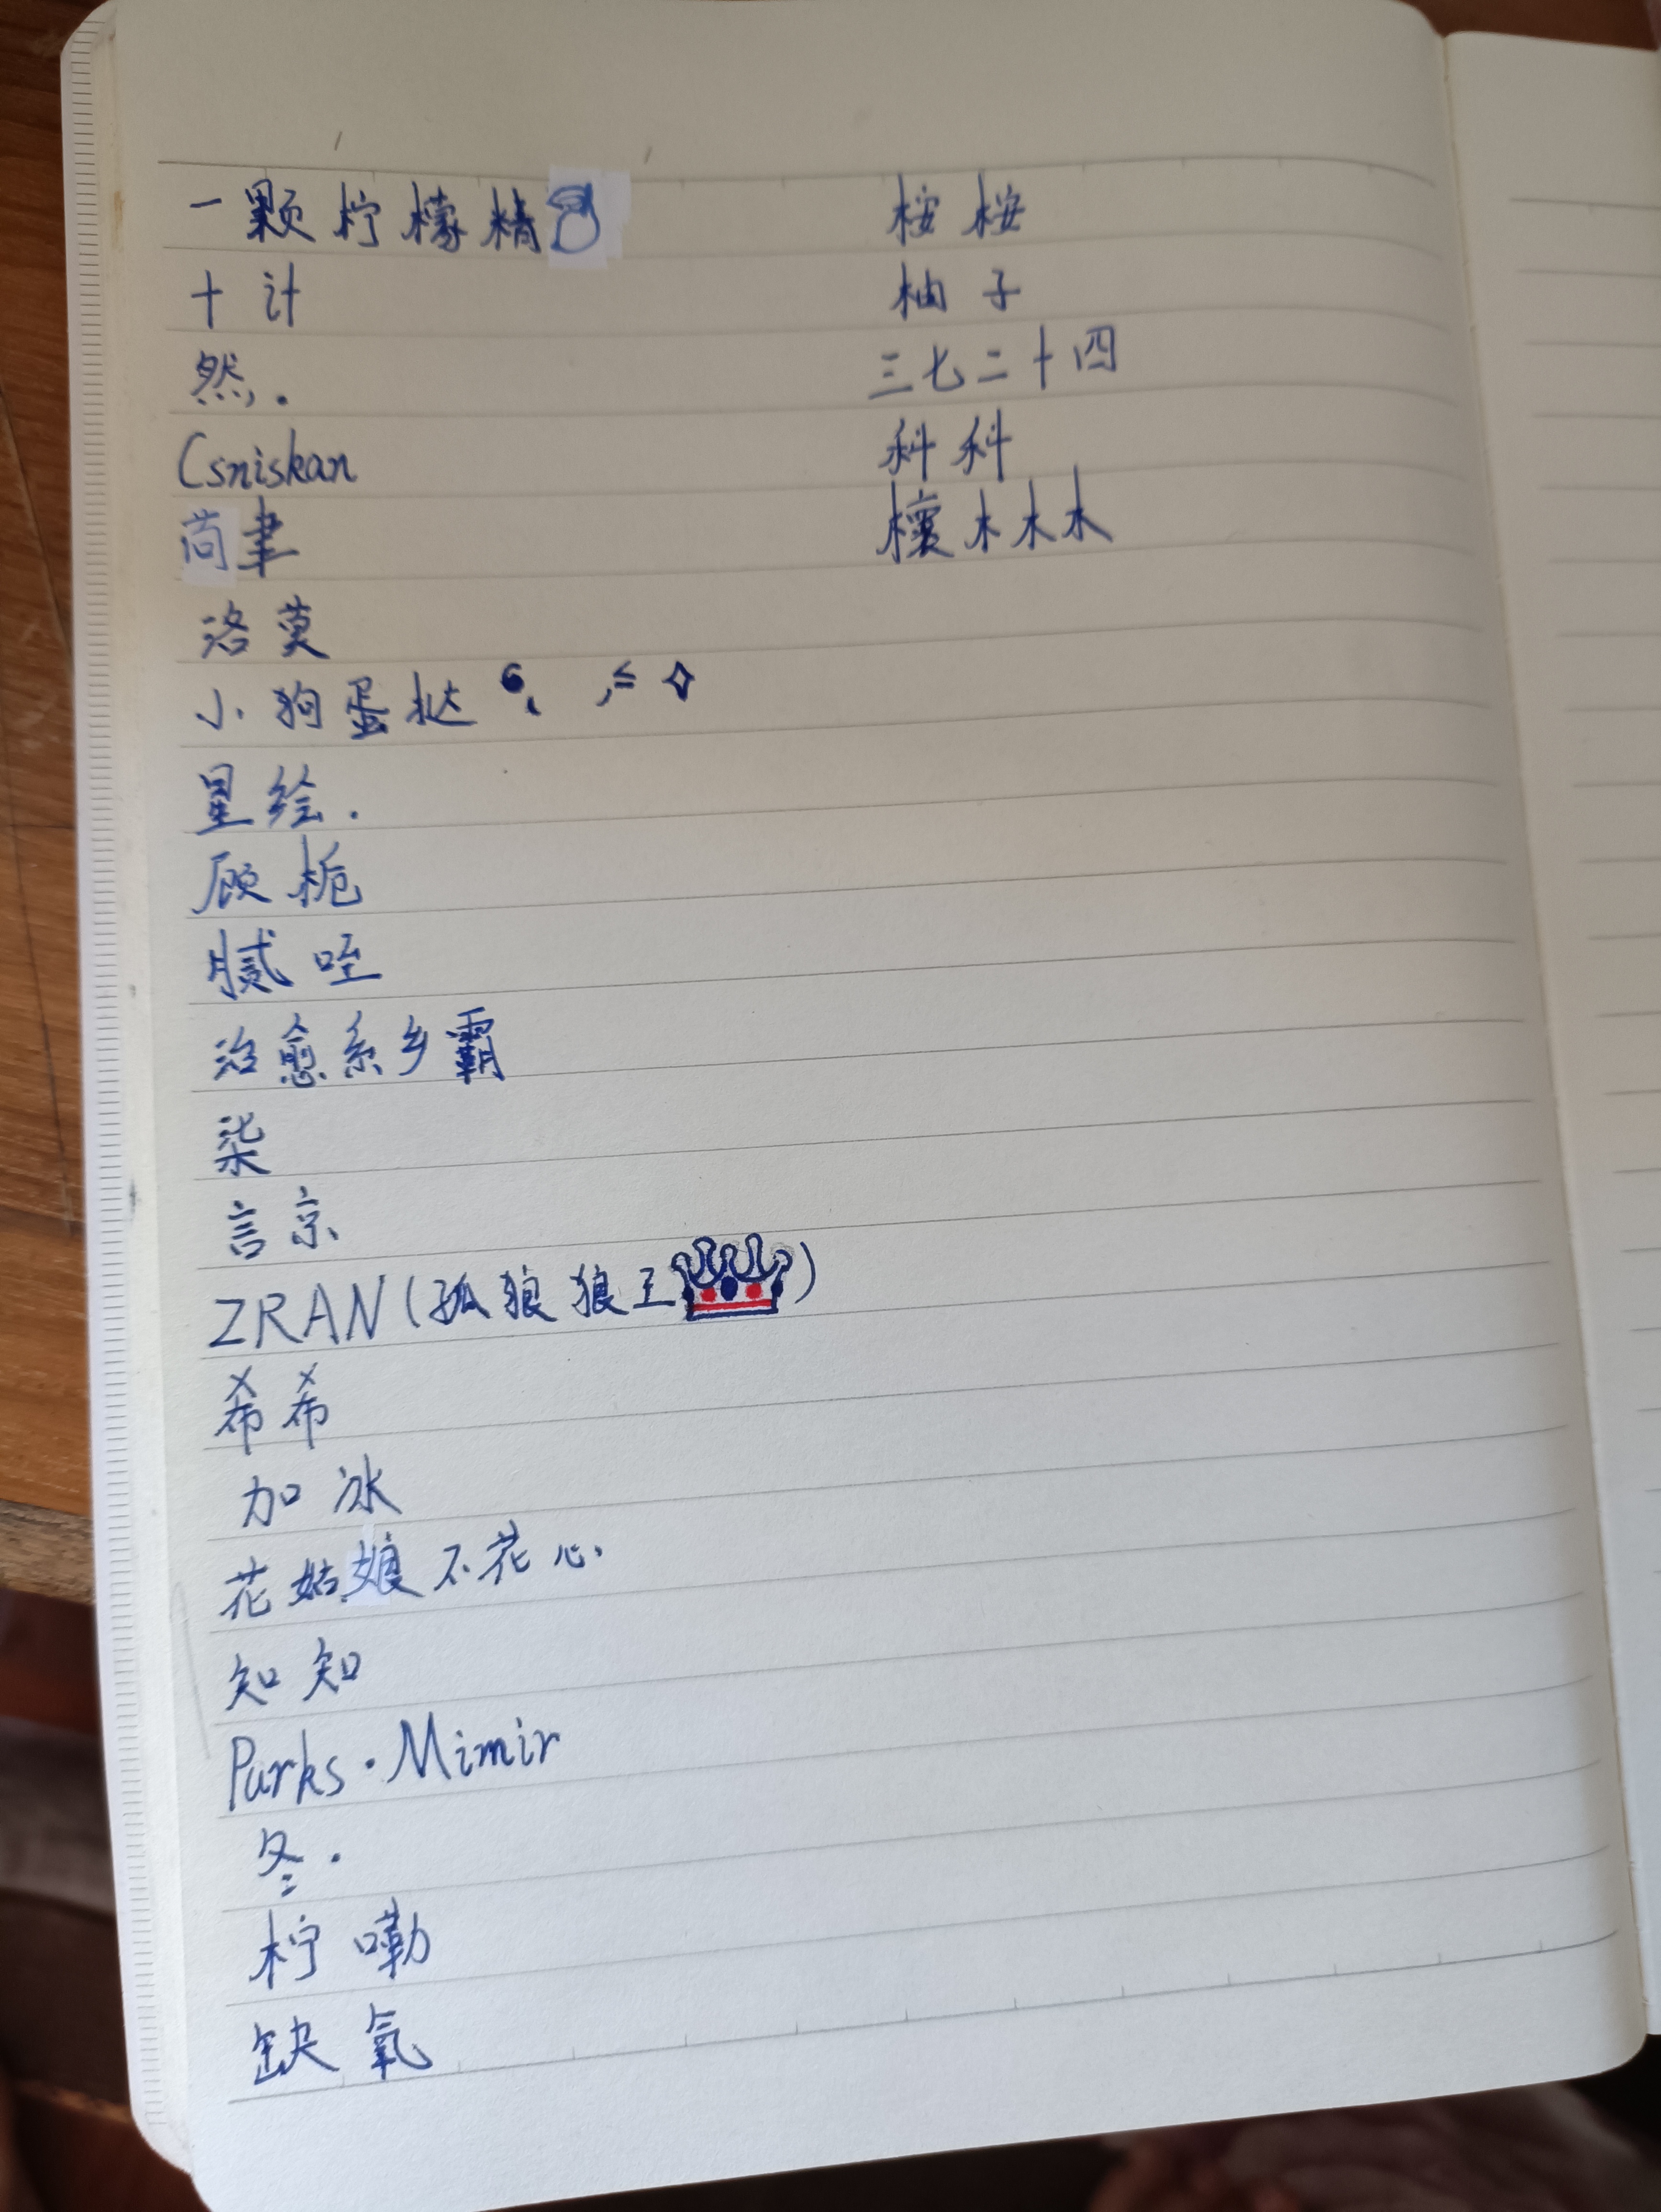 一颗柠檬精
十计
然.
Csniskan
洛莫
小狗蛋挞
星绘.
顾栀
腻咥
治愈系乡霸
柒
言京
ZRAN(孤狼狼王)
希希
加冰
花姑娘不花心
知知
Parks·Mimir
冬.
柠嘞
缺氧
桉桉
柚子
三七二十四
科科
木木木